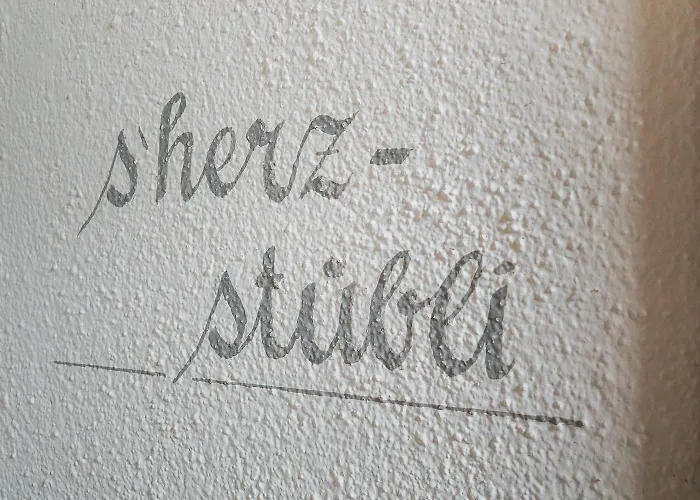 s'herz-
stübli